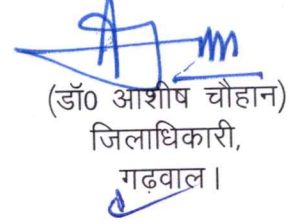 (डॉ0 आशीष चौहान)
जिलाधिकारी,
गढ़वाल।